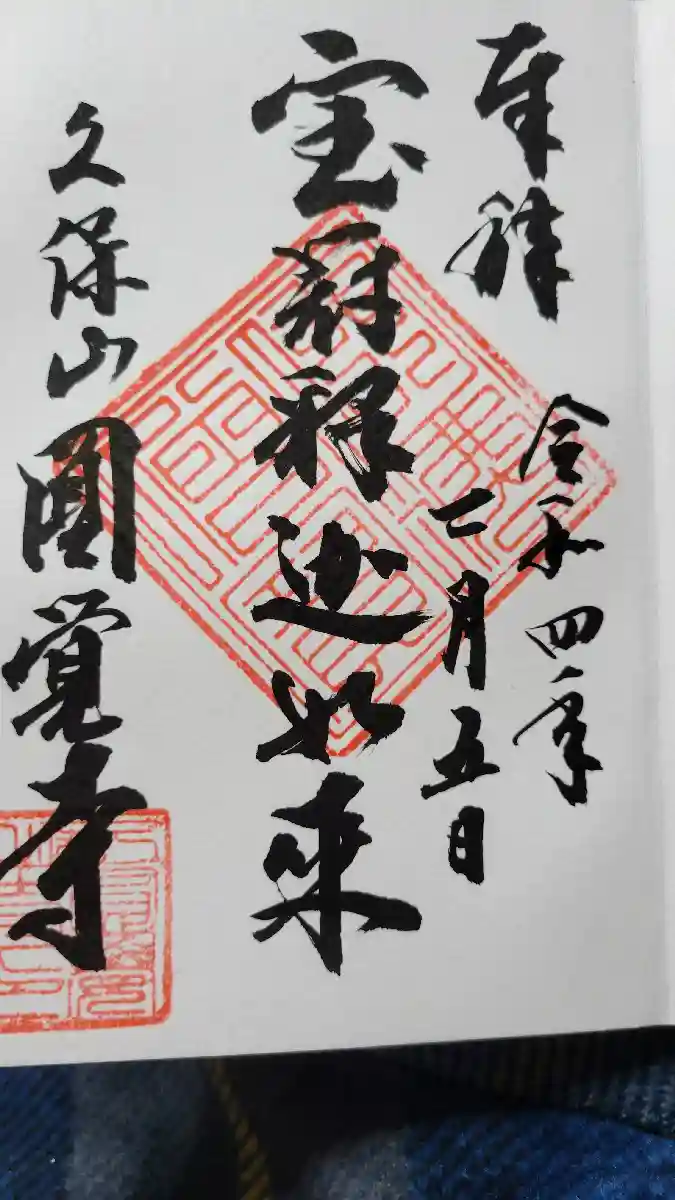 奉拝
令和四年
二月五日
宝冠釋迦如来
久保山圓覚寺